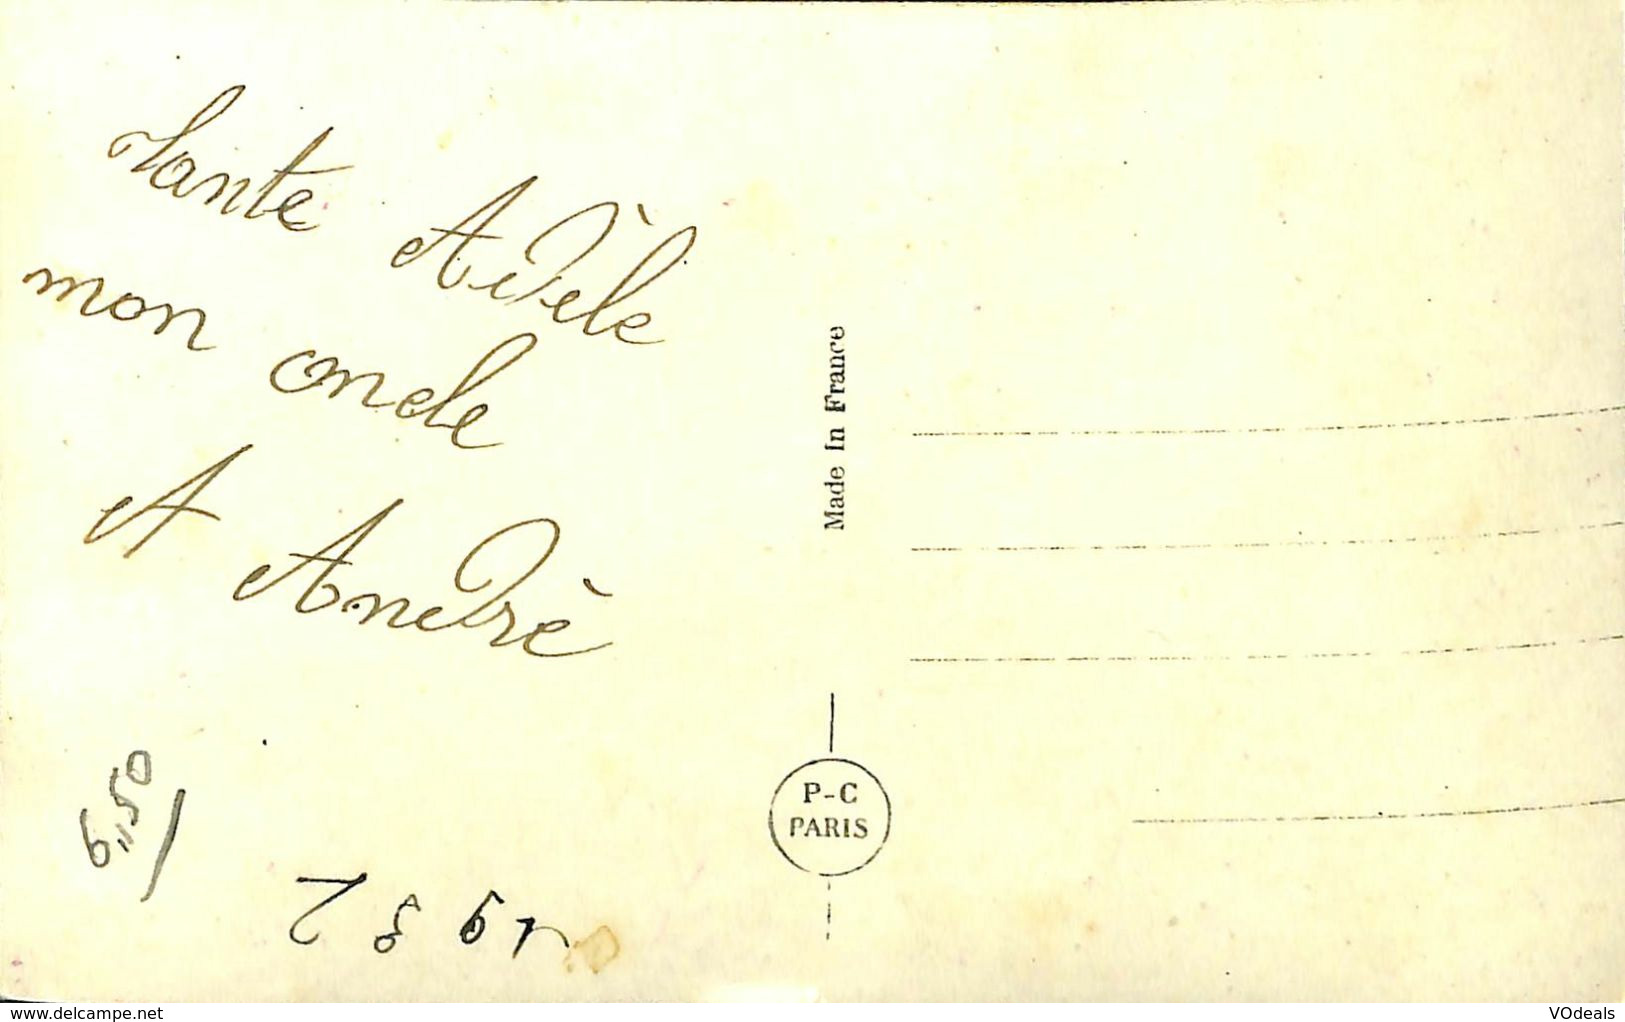 Tante Adèle
mon oncle
A Andrè
6,50
1932
Made In France
P-C
PARIS
www.delcampe.net
VOdeals